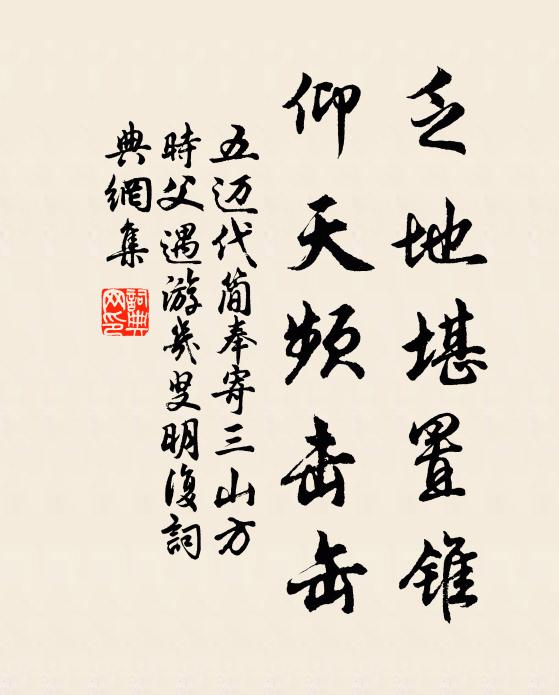 乏地堪置錐
仰天頻击缶
五迈代简奉寄三山方
時父遇游幾叟明復詞
典網集
詞典
网印